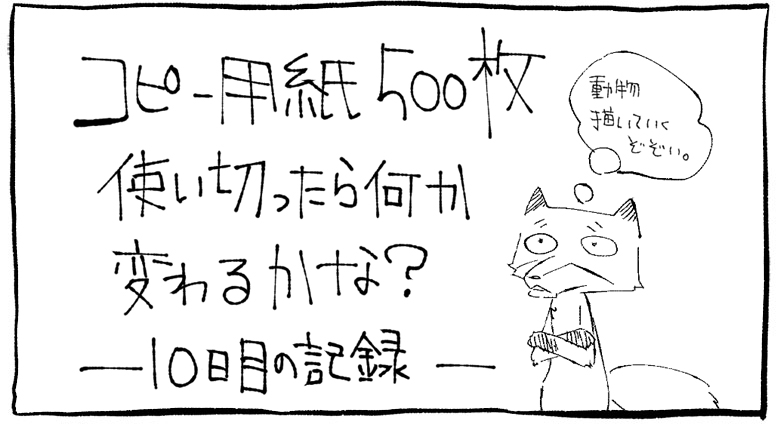 コピー用紙500枚
使い切ったら何か
変わるかな?
―10日目の記録―
動物
描いていく
ぞぞい。